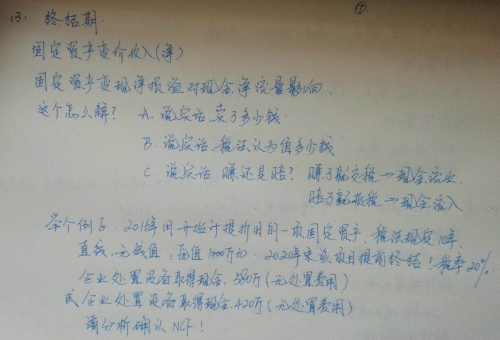 (3) 终结期. ⑦
固定资产变价收入(净)
固定资产变现净损溢对现金净流量影响.
这个怎么解? A. 说实话、卖了多少钱
B. 说实话、税法认为值多少钱
C. 说实话、赚还是赔? 赚了就交税→现金流出
赔了就抵税→现金流入
举个例子: 2016年开始计提折旧的一项固定资产、税法规定10年.
直线、无残值、原值1000万元. 2020年末该项目提前终结! 税率20%
企业处置设备取得现金 580万(无处置费用)
或 企业处置设备取得现金 420万(无处置费用)
请分析确认NCF!